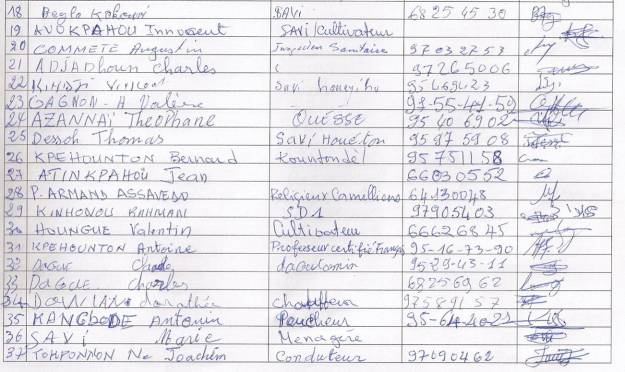 18 Beglo Kokouvi SAVi 68 25 45 30
19 AVOKPAHOU Innocent SAVi/Cultivateur
20 COMMETE Augustin Inspecteur Sanitaire 97032753
21 ADJADhoun Charles 97265006
22 Savi houeyiho 95469423
23 GAGNON-A Valère 98-55-41-59
24 AZANNAÏ Théophane OUESSE 95 40 6902
25 Dessoh Thomas Savi Houéton 95 97 59 08
26 KPEHOUNTON Bernard Kountondé 95 751158
27 ATINKPAHOU Jean 66030552
28 P. ARMAND ASSAVEDO Religieux Camellien 64130048
29 KINHONOU RAHMANI SD1 97905403
30 HOUNGUE Valentin Cultivateur 66626845
31 KPEHOUNTON Antoine Professeur certifié Français 95-16-73-90
32 DAGUE 9529-43-11
33 DAGUE charles 68256962
34 dorothée chauffeur 97589157
35 KANGbODE Antonin Pêcheur 95-64-4023
36 SAVi Marie Menagère
37 TOHPONNON Joachim Conduteur 97090462